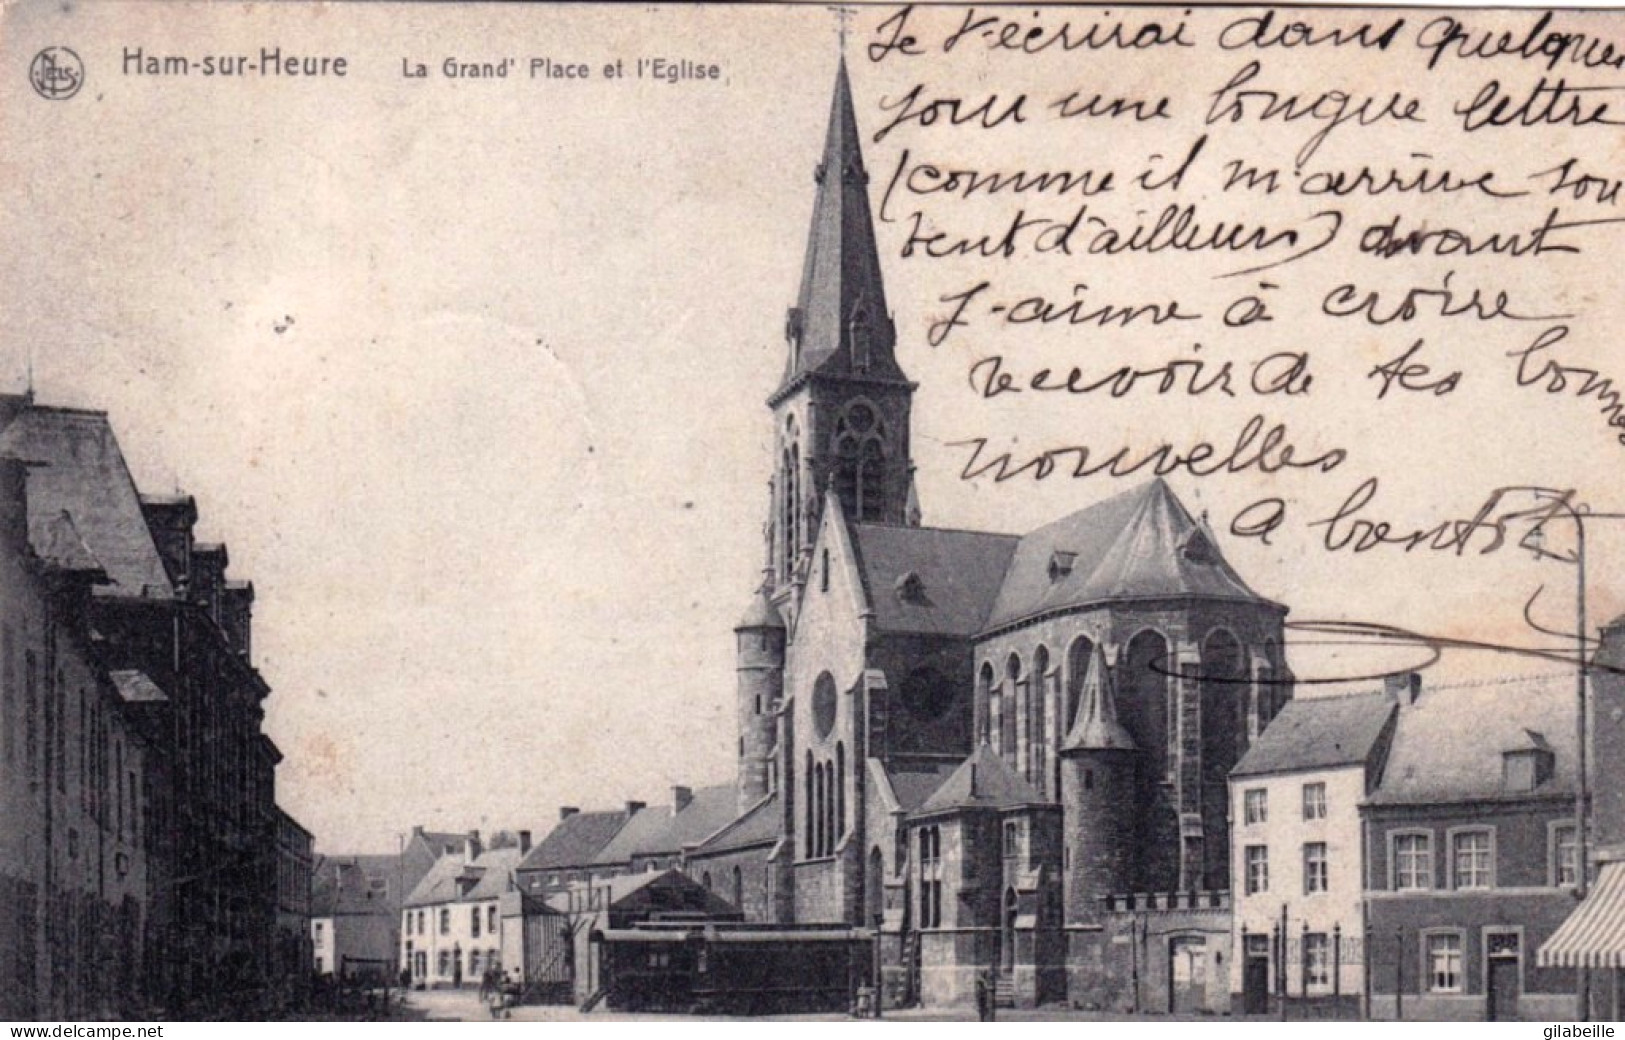 NELS
Ham-sur-Heure La Grand' Place et l'Eglise
Je t'écrirai dans quelques
jours une longue lettre
(comme il m'arrive sou
vent d'ailleurs) avant
J'aime à croire
recevoir de tes bonnes
nouvelles
A bientôt
www.delcampe.net
gilabeille